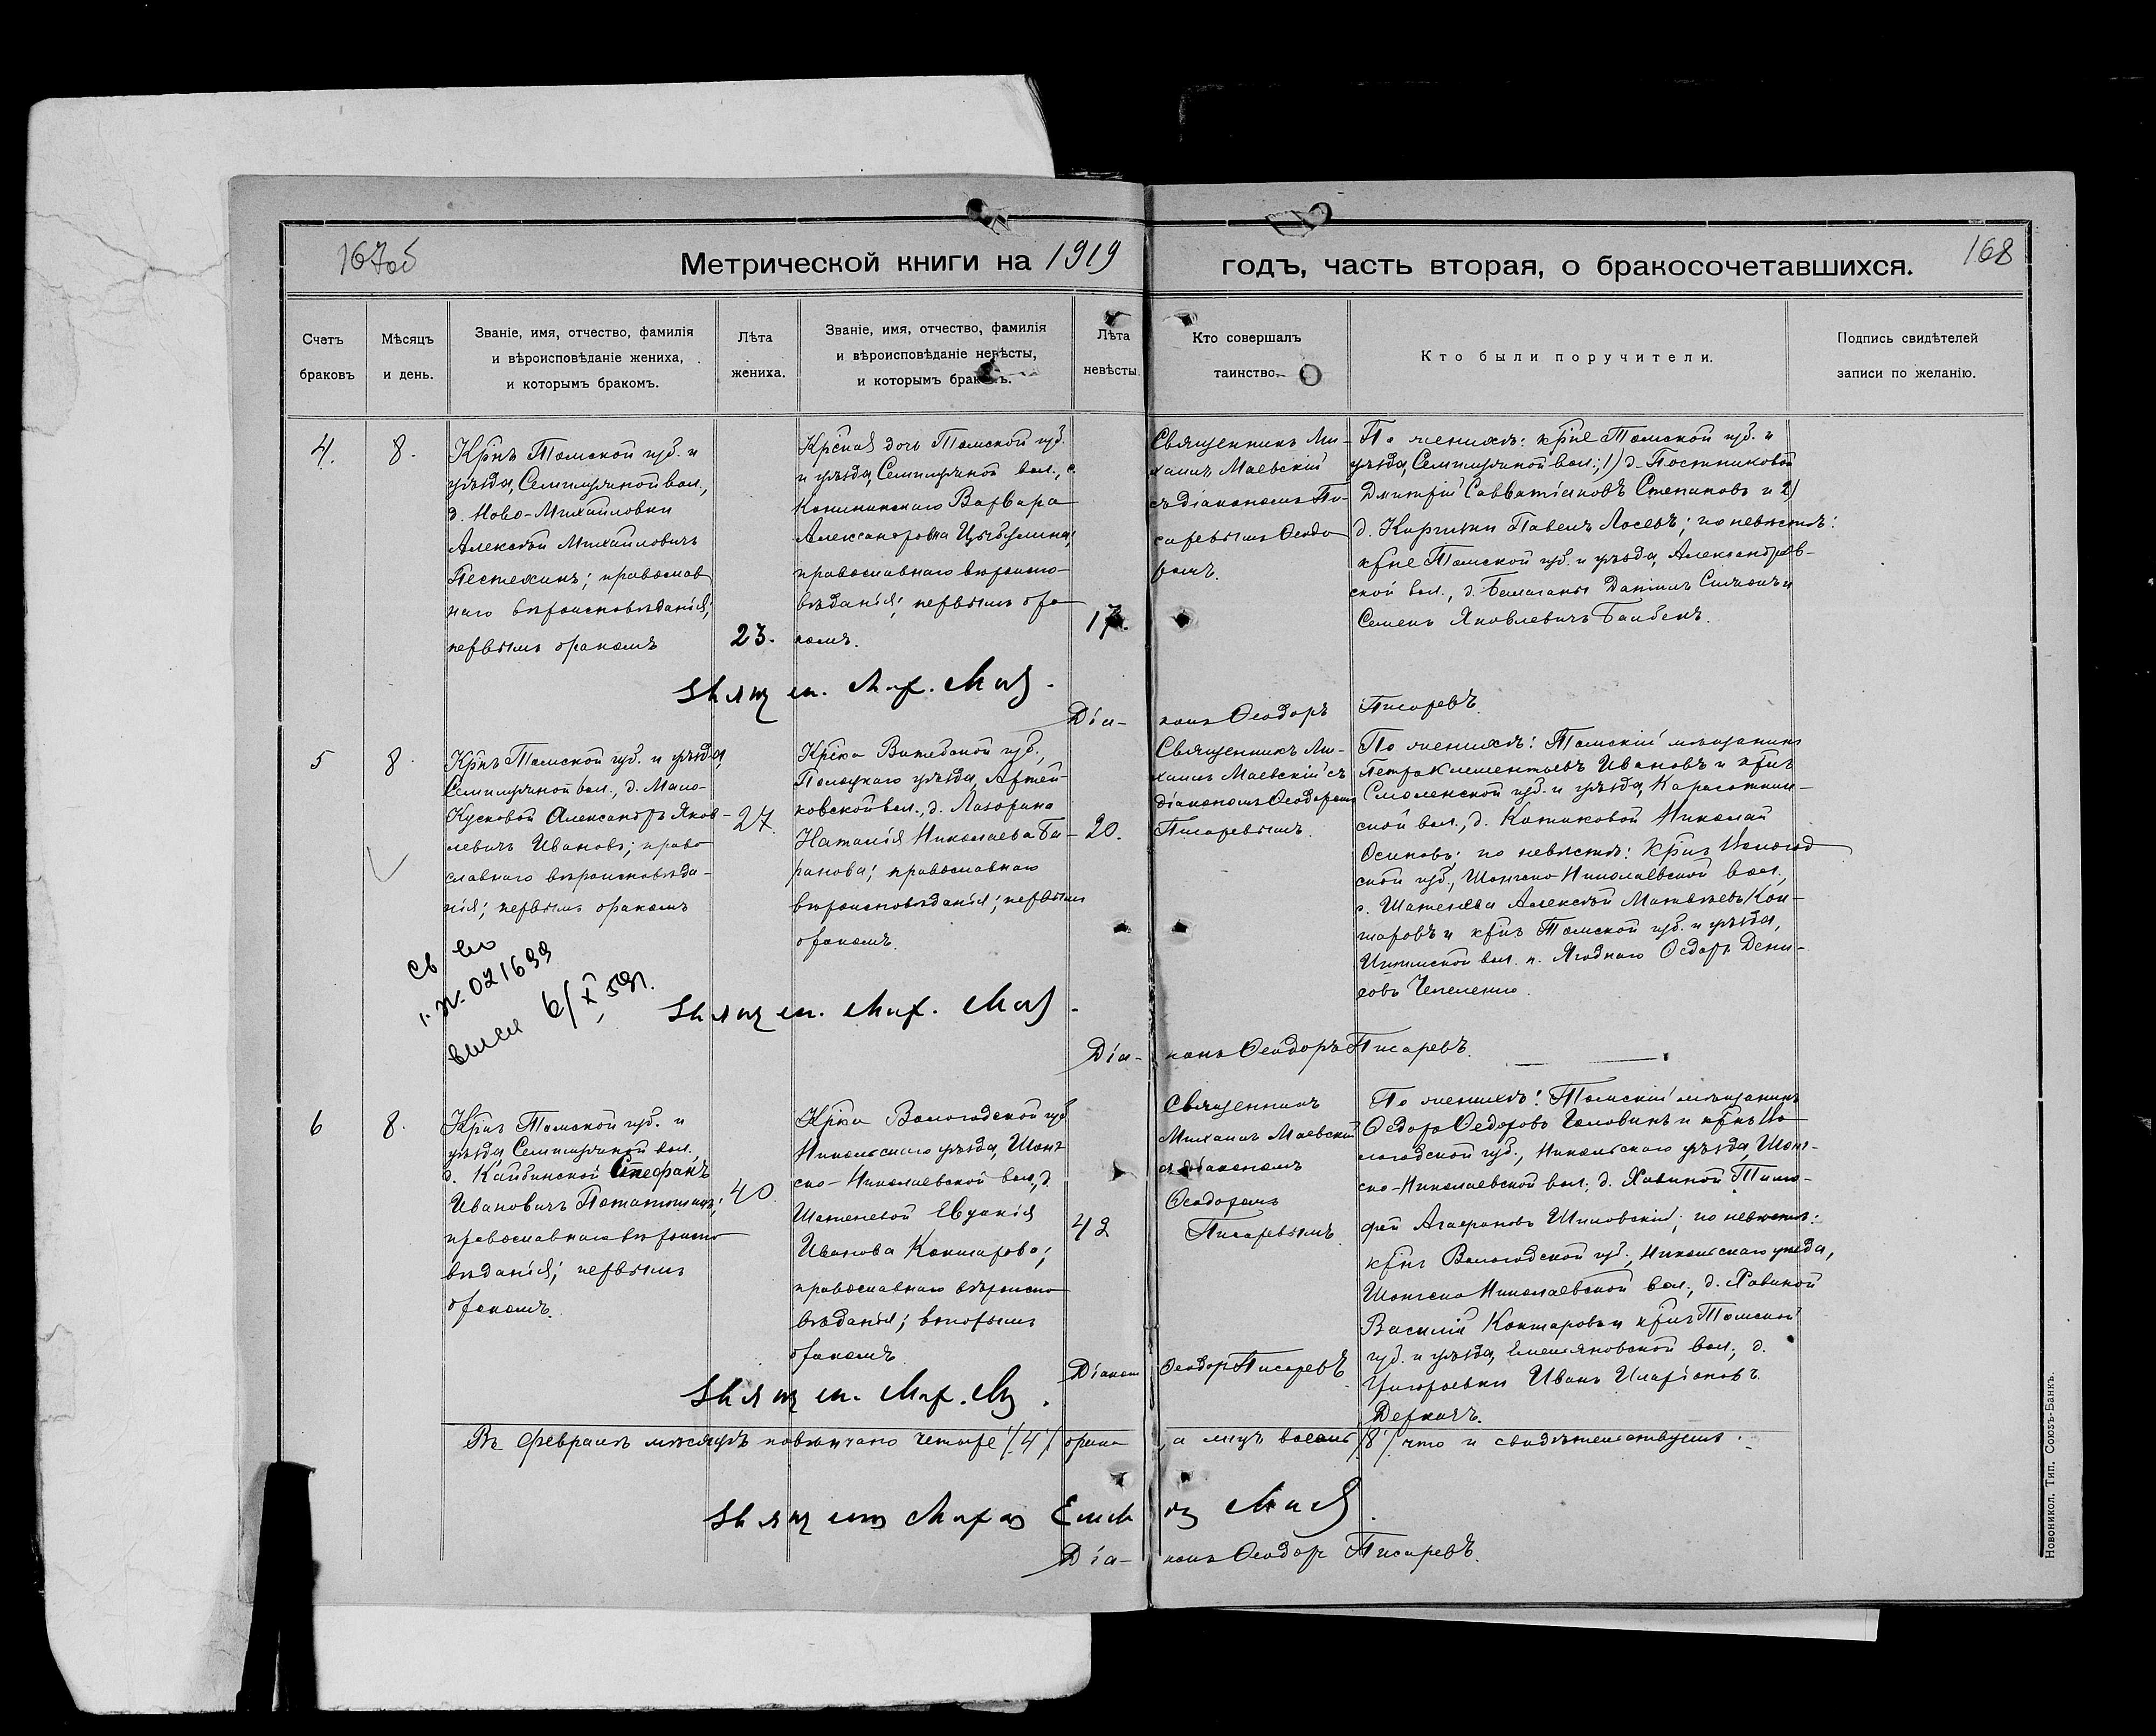 167об
Метрической книги на 1919
годъ, часть вторая, о бракосочетавшихся.
168
Счетъ
браковъ
Мѣсяцъ
и день.
Званіе, имя, отчество, фамилія
и вѣроисповѣданіе жениха,
и которымъ бракомъ.
Лѣта
жениха.
Званіе, имя, отчество, фамилія
и вѣроисповѣданіе невѣсты,
и которымъ бракомъ.
Лѣта
невѣсты.
Кто совершалъ
таинство.
Кто были поручители.
Подпись свидѣтелей
записи по желанію.
4.
8.
Крнъ Томской губ. и
уѣзда, Семилужной вол.,
д. Ново-Михайловки
Алексѣй Михайловичъ
Пестехинъ; православ
наго вѣроисповѣданія;
первымъ бракомъ
23.
Крсная дочь Томской губ.
и уѣзда, Семилужной вол., с.
Конининскаго Варвара
Александровна Цыбулина;
православнаго вѣроиспо-
вѣданія; первымъ бра
комъ.
17.
Священникъ Ми-
хаилъ Маевскій
съ діакономъ Пи-
саревымъ Ѳеодо
ромъ.
По женихѣ: крне Томской губ. и
уѣзда, Семилужной вол.; 1) д. Постниковой
Дмитрій Савватіановъ Степановъ и 2)
д. Киргизки Павелъ Лосевъ; по невѣстѣ:
крне Томской губ. и уѣзда, Александров-
ской вол., д. Даніилъ
Семенъ Яковлевичъ
Діа-
конъ Ѳеодоръ
Писаревъ.
5
8.
Крнъ Томской губ. и уѣзда,
Семилужной вол., д. Мало-
Кусковой Александръ Яков-
левичъ Ивановъ; право
славнаго вѣроисповѣда-
нія; первымъ бракомъ
27.
Крнка Витебской губ.,
Полоцкаго уѣзда, Артей-
ковской вол., д. Лазорина
Наталія Николаева Ба-
ранова; православнаго
вѣроисповѣданія; первымъ
бракомъ.
20.
Священникъ Ми-
хаилъ Маевскій съ
діакономъ Ѳеодоромъ
Писаревымъ.
По женихѣ: Томскій мѣщанинъ
Петръ Клементьевъ Ивановъ и крнъ
Смоленской губ. и уѣзда,
ской вол., д. Котиковой Николай
Осиповъ; по невѣстѣ: крнъ Вологод
ской губ., Шонгско Николаевской вол.,
д. Шатенева Алексѣй Матвѣевъ Кок-
шаровъ и крнъ Томской губ. и уѣзда,
Ишимской вол. п. Ягоднаго Ѳедоръ Дени-
совъ
№ 021699
6/X 59г.
Діа-
конъ Ѳеодоръ Писаревъ.
6
8.
Крнъ Томской губ. и
уѣзда Семилужной вол.,
д. Кайбинской Стефанъ
Ивановичъ
православнаго вѣроиспо
вѣданія; первымъ
бракомъ.
40.
Крнка Вологодской губ.
Никольскаго уѣзда, Шонг-
ско-Николаевской вол., д.
Шатеневой Евдокія
Иванова Кокшарова;
православнаго вѣроиспо
вѣданія; вторымъ
бракомъ.
42
Священникъ
Михаилъ Маевскій
съ діакономъ
Ѳеодоромъ
Писаревымъ.
По женихѣ: Томскій мѣщанинъ
Ѳедоръ Ѳедоровъ Головинъ и крнъ Во
логодской губ., Никольскаго уѣзда, Шонг-
ско-Николаевской вол., д. Хавиной Тимо-
фей Агафоновъ Шиловскій; по невѣстѣ:
крнъ Вологодской губ., Никольскаго уѣзда,
Шонгско Николаевской вол., д. Хавиной
Василій Кокшаровъ и крнъ Томской
губ. и уѣзда, Емельяновской вол., д.
Григорьевки Иванъ Иларіоновъ
Деркачъ.
Діаконъ Ѳеодоръ Писаревъ
Въ Февралѣ мѣсяцѣ повѣнчано четыре /4/ брака, а лицъ восемь /8/ что и свидѣтельствуемъ.
Діа-конъ Ѳеодоръ Писаревъ.
Новоникол. Тип. Союзъ-Банкъ.